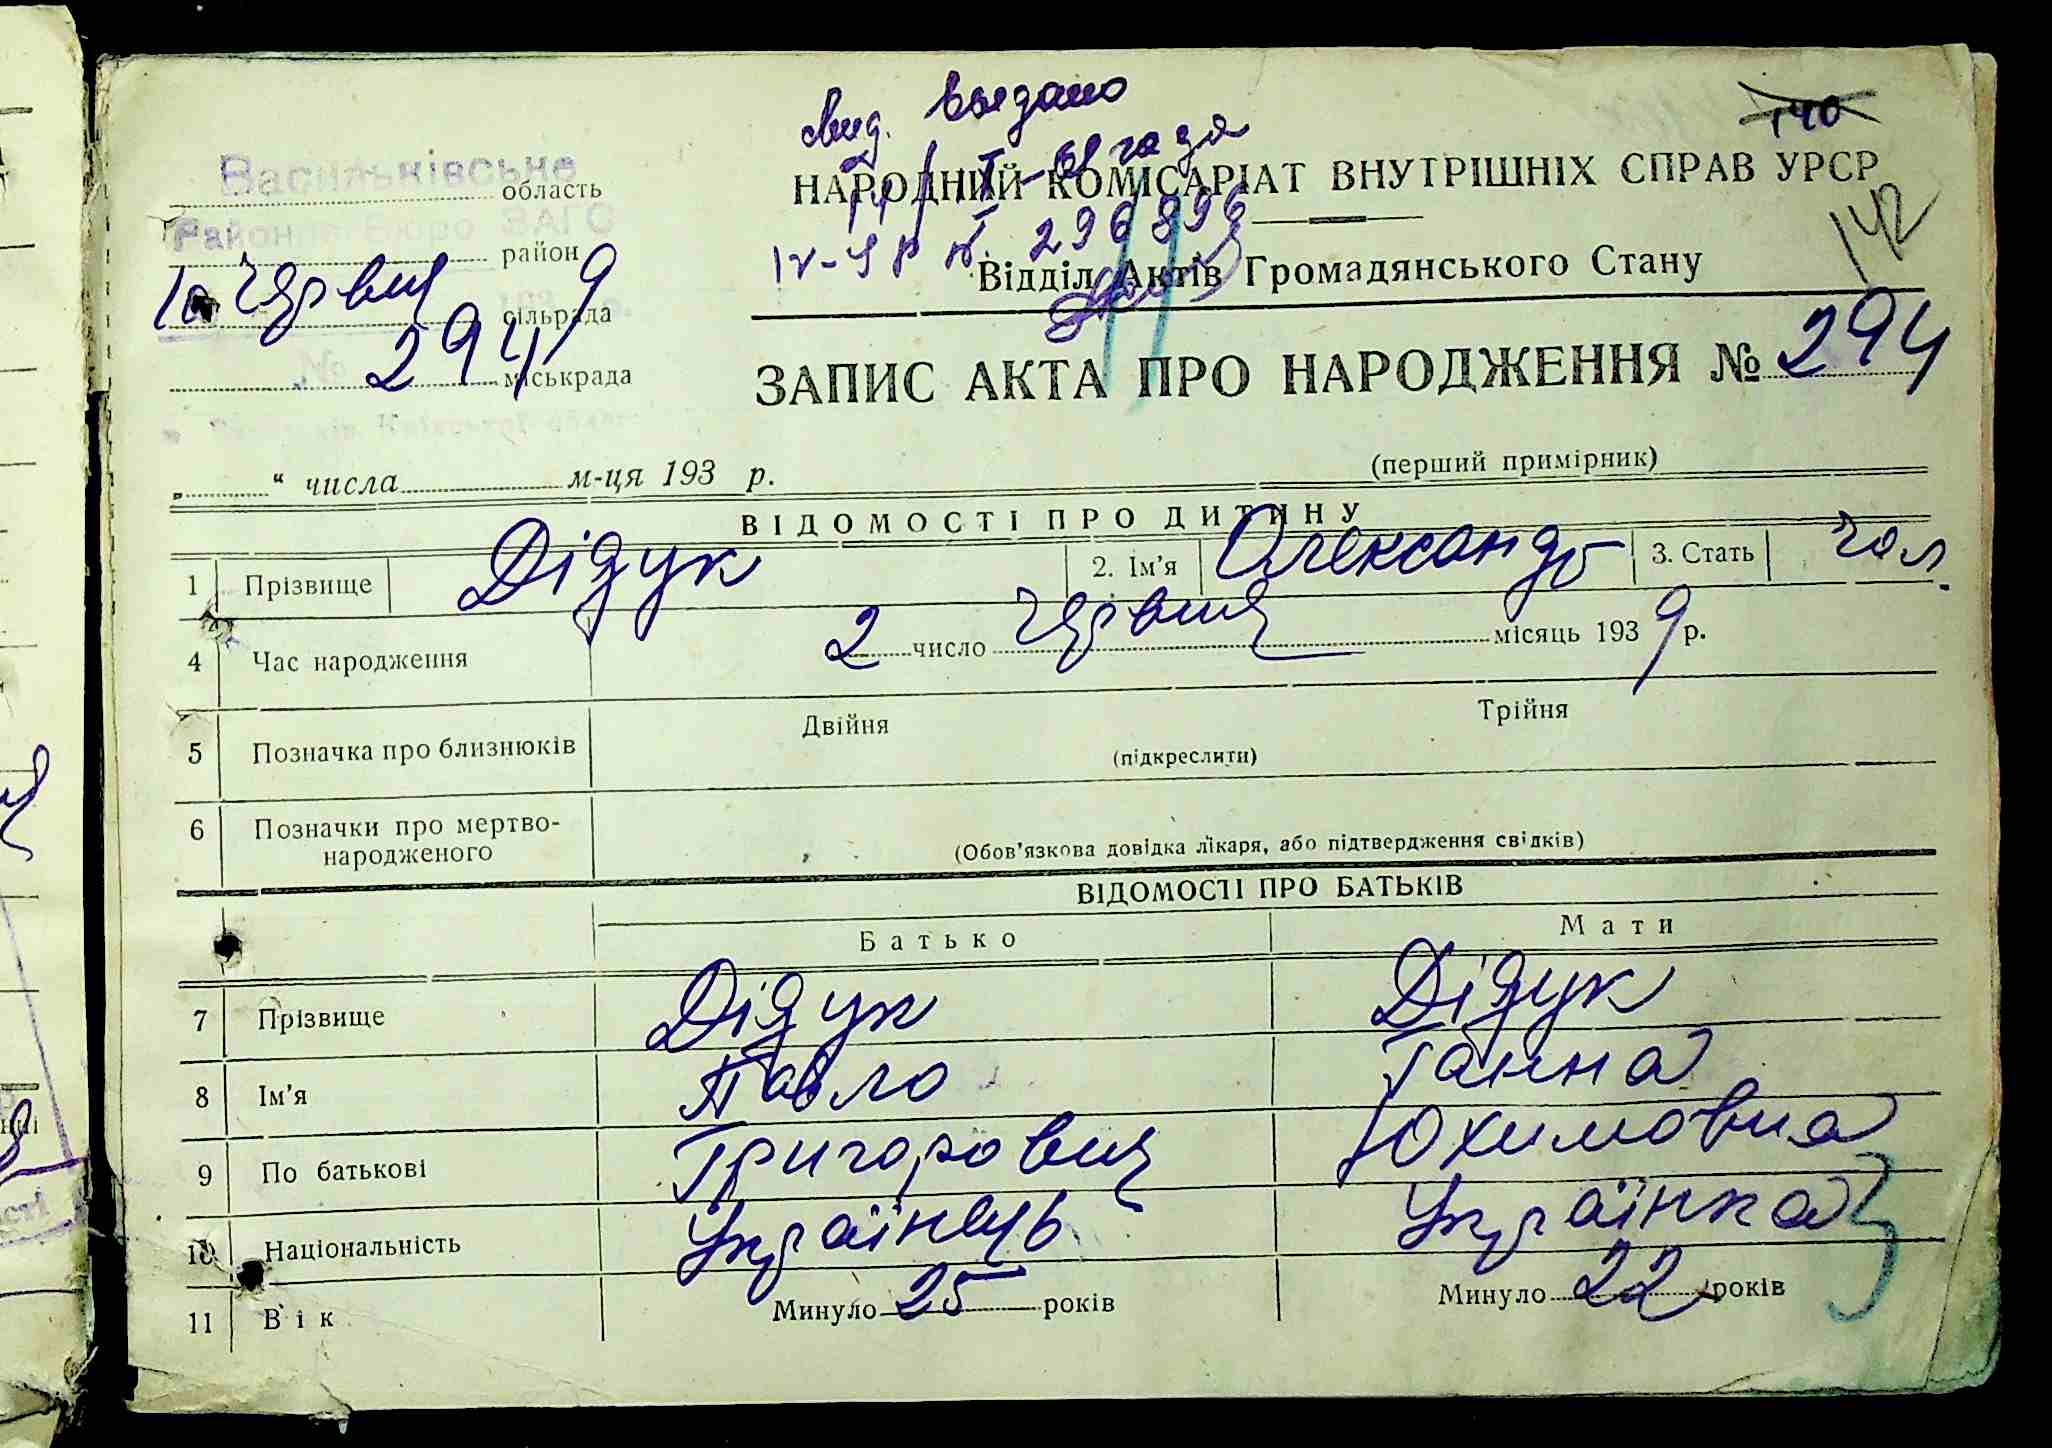 Свид. выдано
140
Васильківське область
НАРОДНИЙ КОМІСАРІАТ ВНУТРІШНІХ СПРАВ УРСР
Районне Бюро ЗАГС район
142
296896
Відділ Актів Громадянського Стану
10 червня 9 сільрада
№ 294 міськрада
ЗАПИС АКТА ПРО НАРОДЖЕННЯ № 294
(перший примірник)
„ “ числа м-ця 193 р.
ВІДОМОСТІ ПРО ДИТИНУ
1 Прізвище Дідук 2. Ім'я Олександр 3. Стать чол.
4 Час народження 2 число червня місяць 1939 р.
5 Позначка про близнюків Двійня Трійня
(підкреслити)
6 Позначки про мертво-
народженого
(Обов'язкова довідка лікаря, або підтвердження свідків)
ВІДОМОСТІ ПРО БАТЬКІВ
Батько Мати
7 Прізвище Дідук Дідук
8 Ім'я Павло Ганна
9 По батькові Григорович Юхимовна
10 Національність Українець Українка
11 Вік Минуло 25 років Минуло 22 років